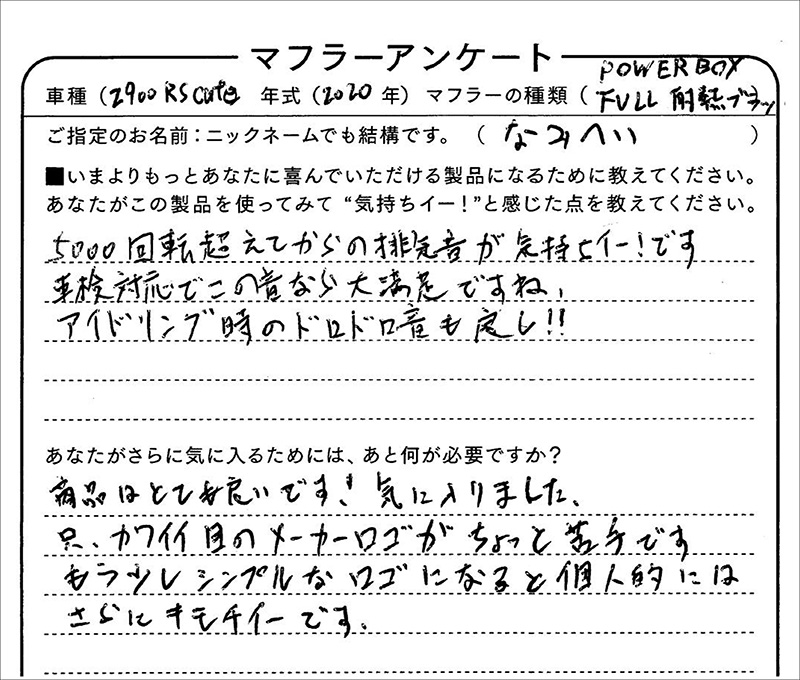 マフラーアンケート
車種(Z900RS cafe 年式(2020年)マフラーの種類(POWERBOX
FULL 耐熱ブラッ
ご指定のお名前:ニックネームでも結構です。( なみへい )
■いまよりもっとあなたに喜んでいただける製品になるために教えてください。
あなたがこの製品を使ってみて“気持ちイー!”と感じた点を教えてください。
5000回転超えてからの排気音が気持ちイー!です
車検対応でこの音なら大満足ですね、
アイドリング時のドロドロ音も良し!!
あなたがさらに気に入るためには、あと何が必要ですか?
商品はとても良いです!気に入りました、
只、カワイイ目のメーカーロゴがちょっと苦手です
もう少しシンプルなロゴになると個人的には
さらにキモチイーです.